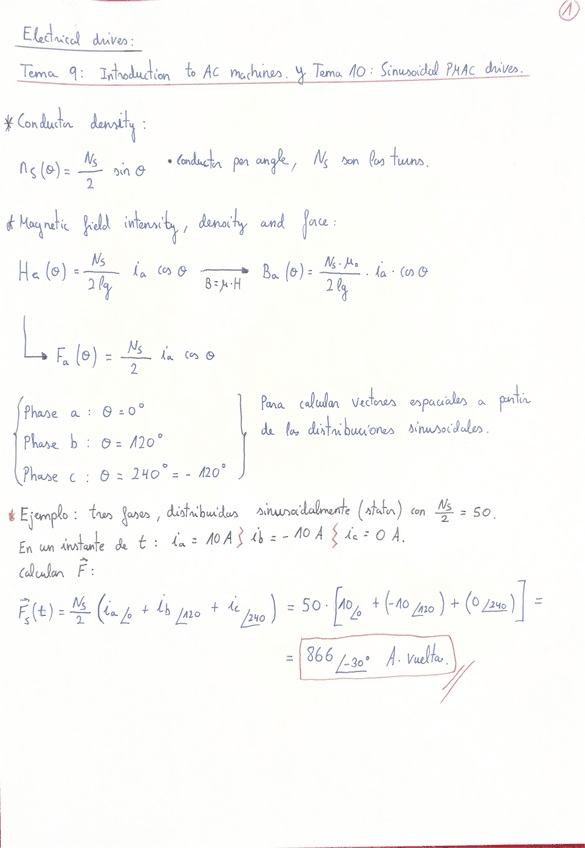 1
Electrical drives:
Tema 9: Introduction to AC machines. y Tema 10: Sinusoidal PMAC drives.
* Conductor density:
ns(θ) = Ns/2 sin θ • conductor per angle, Ns son las turns.
* Magnetic field intensity, density and force:
Ha(θ) = Ns/2lg ia cos θ → B=μ·H Ba(θ) = Ns·μ₀/2lg · ia · cos θ
↳ Fa(θ) = Ns/2 ia cos θ
Phase a: θ = 0°
Phase b: θ = 120°
Phase c: θ = 240° = - 120°
Para calcular vectores espaciales a partir
de las distribuciones sinusoidales.
* Ejemplo: tres fases, distribuidas sinusoidalmente (stator) con Ns/2 = 50.
En un instante de t: ia = 10 A } ib = -10 A } ic = 0 A.
Calcular F⃗:
F⃗s(t) = Ns/2 (ia∠0 + ib∠120 + ic∠240) = 50·[10∠0 + (-10∠120) + (0∠240)] =
= 866∠-30° A·vuelta.